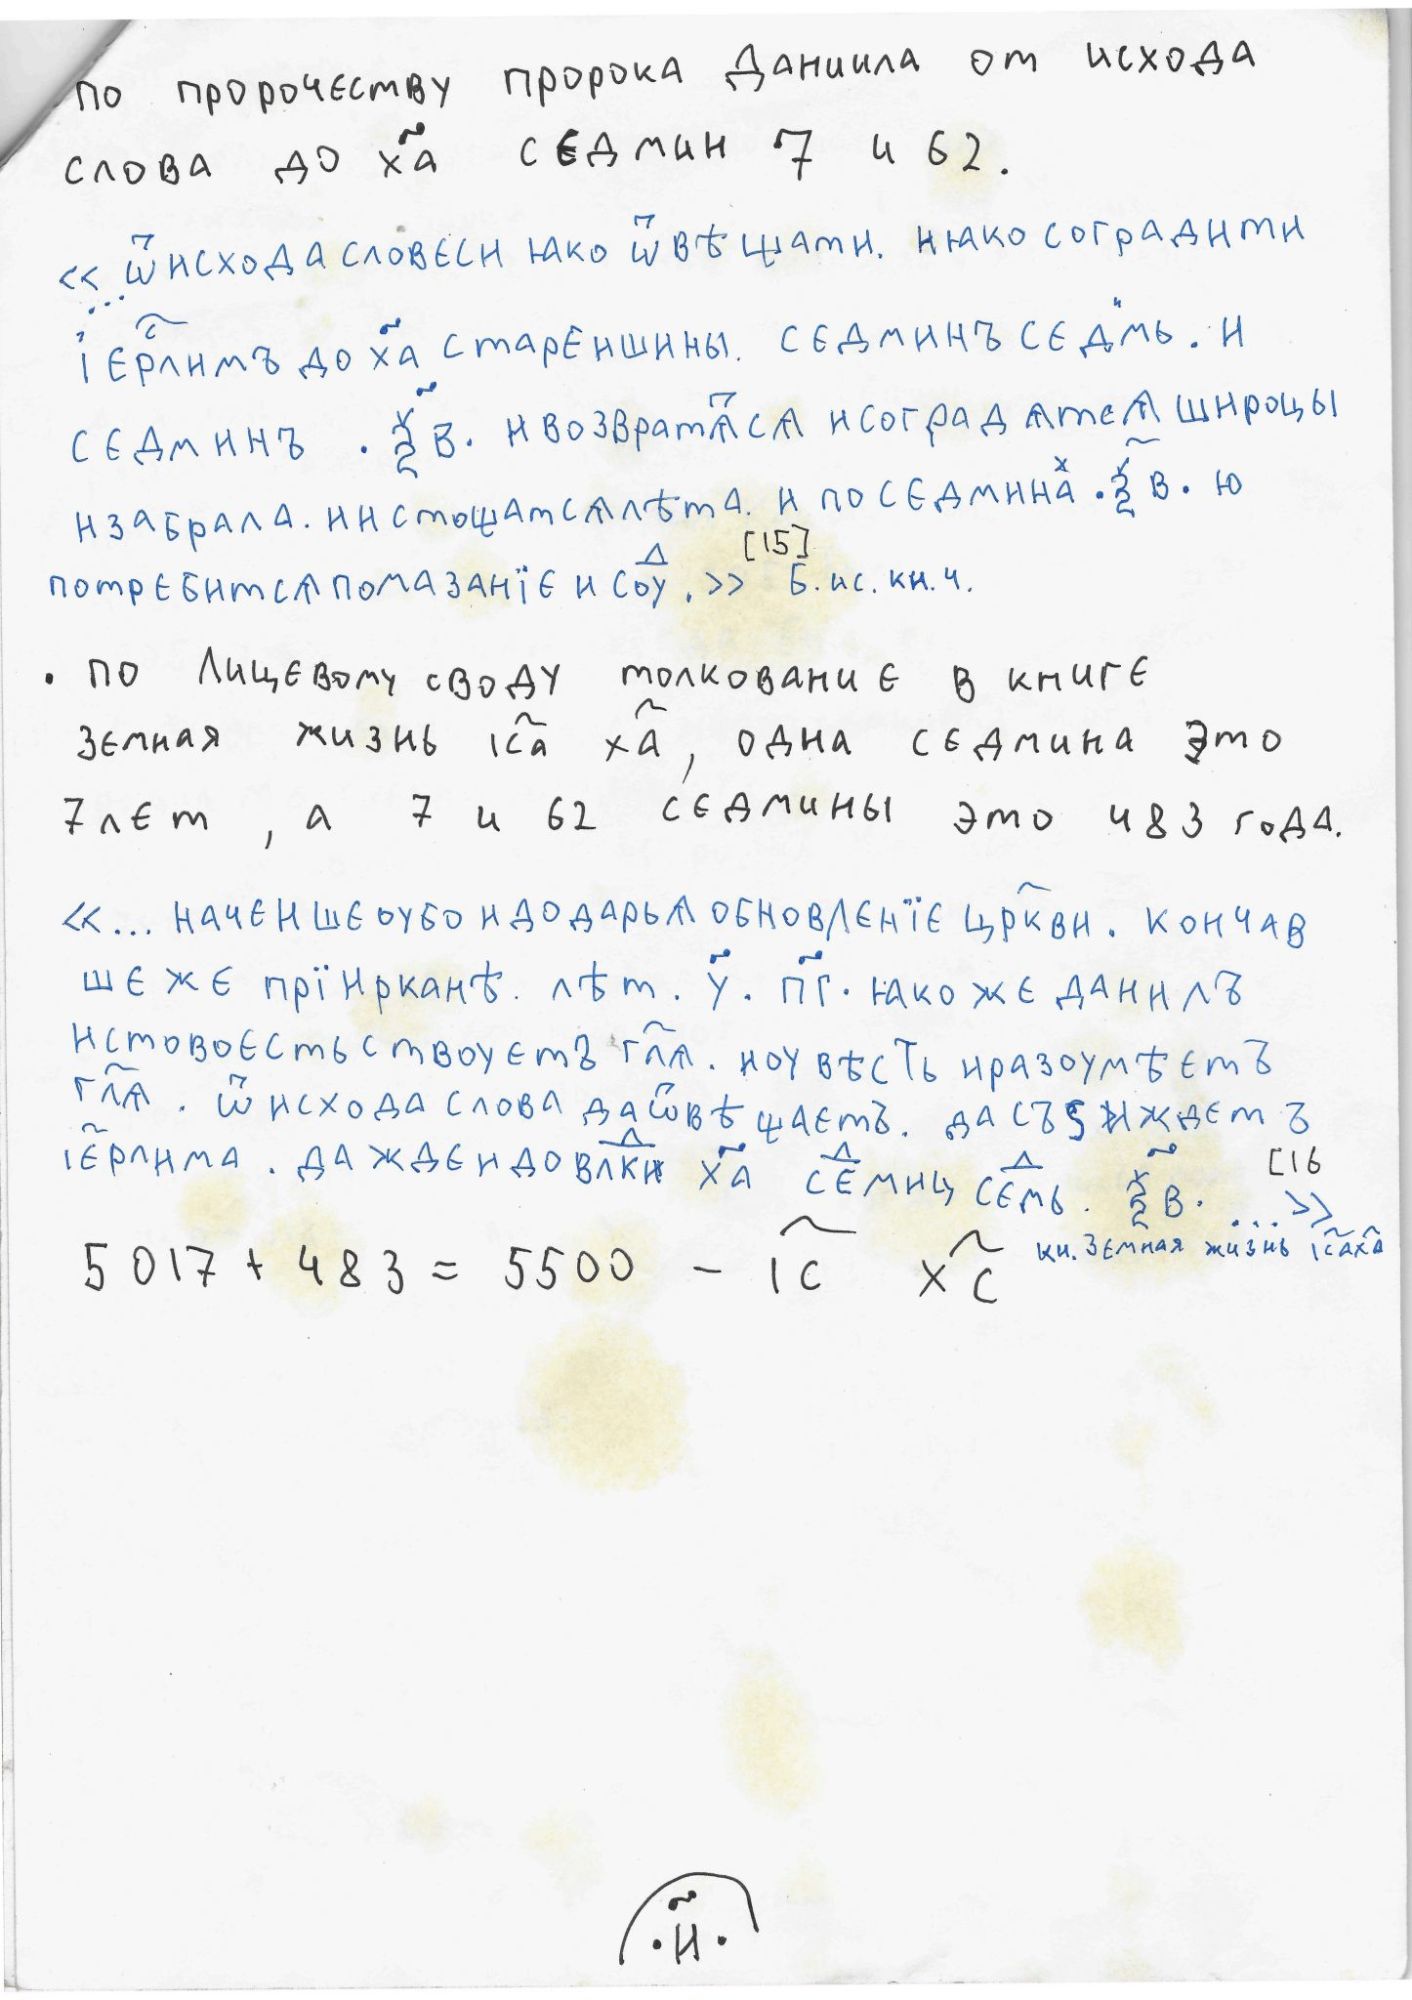 по пророчеству пророка Даниила от исхода
слова до х҃а седмин 7 и 62.
«ѿисходасловеси ꙗко ѿвѣщати. иꙗкосоградити
...і҆ер҇лимъ до х҃а старѣишины. седминъ седмь. и
седминъ .ѯ҃в. ивозвратѧⷮсѧ исоградѧтсѧ широцы
изабрала. иистощатсѧлѣта. и поседминаⷯ .ѯ҃в. ю
потребитсѧпомазанїе и соуⷣ.» [15] Б.ис.кн.ч.
. по Лицевому своду толкование в книге
земная жизнь іс҃а х҃а, одна седмина это
7 лет, а 7 и 62 седмины это 483 года.
«... наченшеоубо идодарьѧ обновленїе цр҃кви. кончав
шеже прїирканѣ. лѣт. у҃. п҃г. ꙗкоже данилъ
истовоестьствоуетъ гл҃ѧ. ноувѣсть иразоумѣетъ
гл҃ѧ. ѿисхода слова даѿвѣщаетъ. да съзиждетъ
іе҃рлима. даждеидовлⷣки х҃а сеⷣмиц сеⷣмь. ѯ҃в. ...» [16
кн. Земная жизнь іс҃а х҃а
5017 + 483 = 5500 - іс҃ хс҃
.и҃.